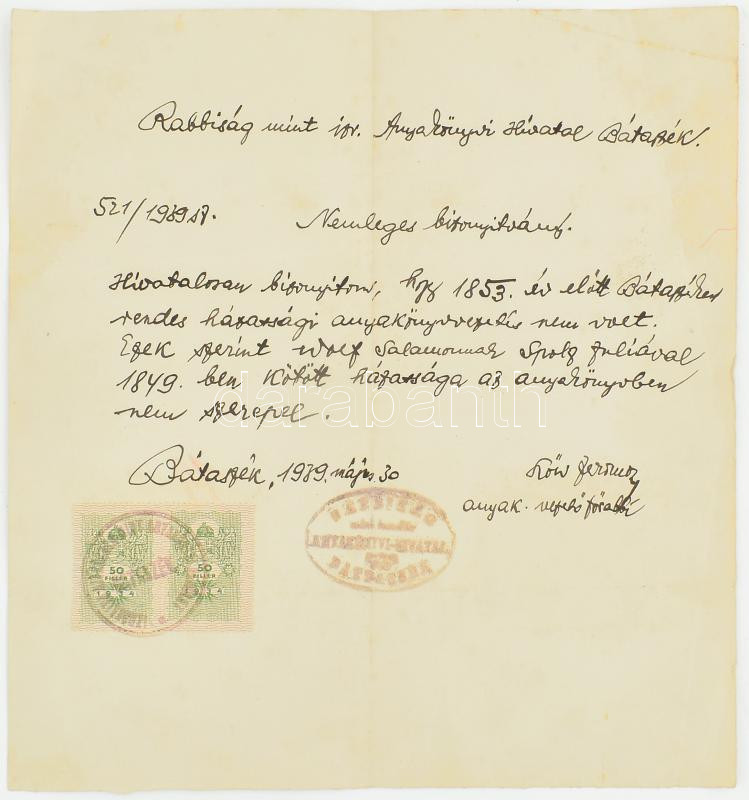 Rabbiság mint izr. Anyakönyvi Hivatal Bátaszék.
521/1939 sz. Nemleges bizonyitvány.
Hivatalosan bizonyitom, hogy 1853. év előtt Bátaszéken
rendes házassági anyakönyvvezetés nem volt.
Ezek szerint Wolf Salamonnak Spolz Juliával
1849. ben kötött házassága az anyakönyvben
nem szerepel.
Bátaszék, 1939. május 30
Löw
anyak. vezető főrabbi
RABBISÁG
mint izraelita
ANYAKÖNYVI-HIVATAL
BÁTASZÉK
50 FILLÉR 1934
50 FILLÉR 1934
darabanth